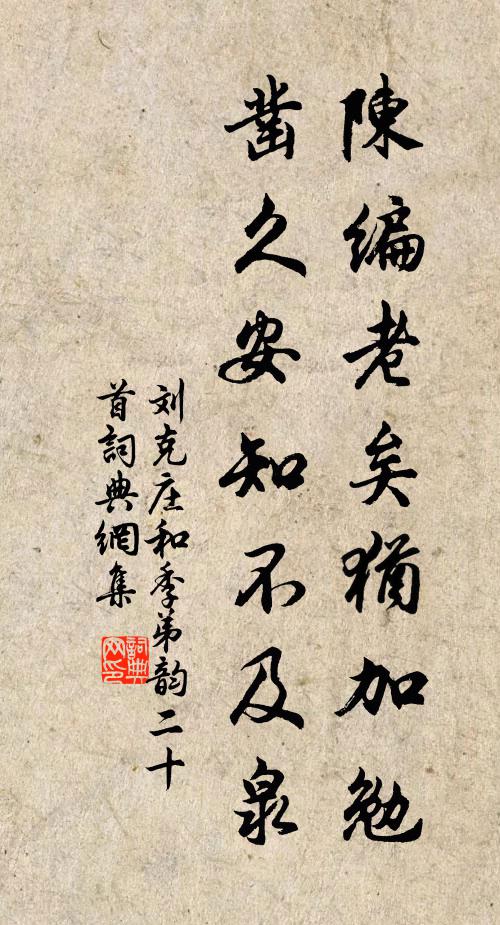 陳編老矣猶加勉
鑿久安知不及泉
刘克庄和季弟韵二十
首詞典網集
詞典
网印